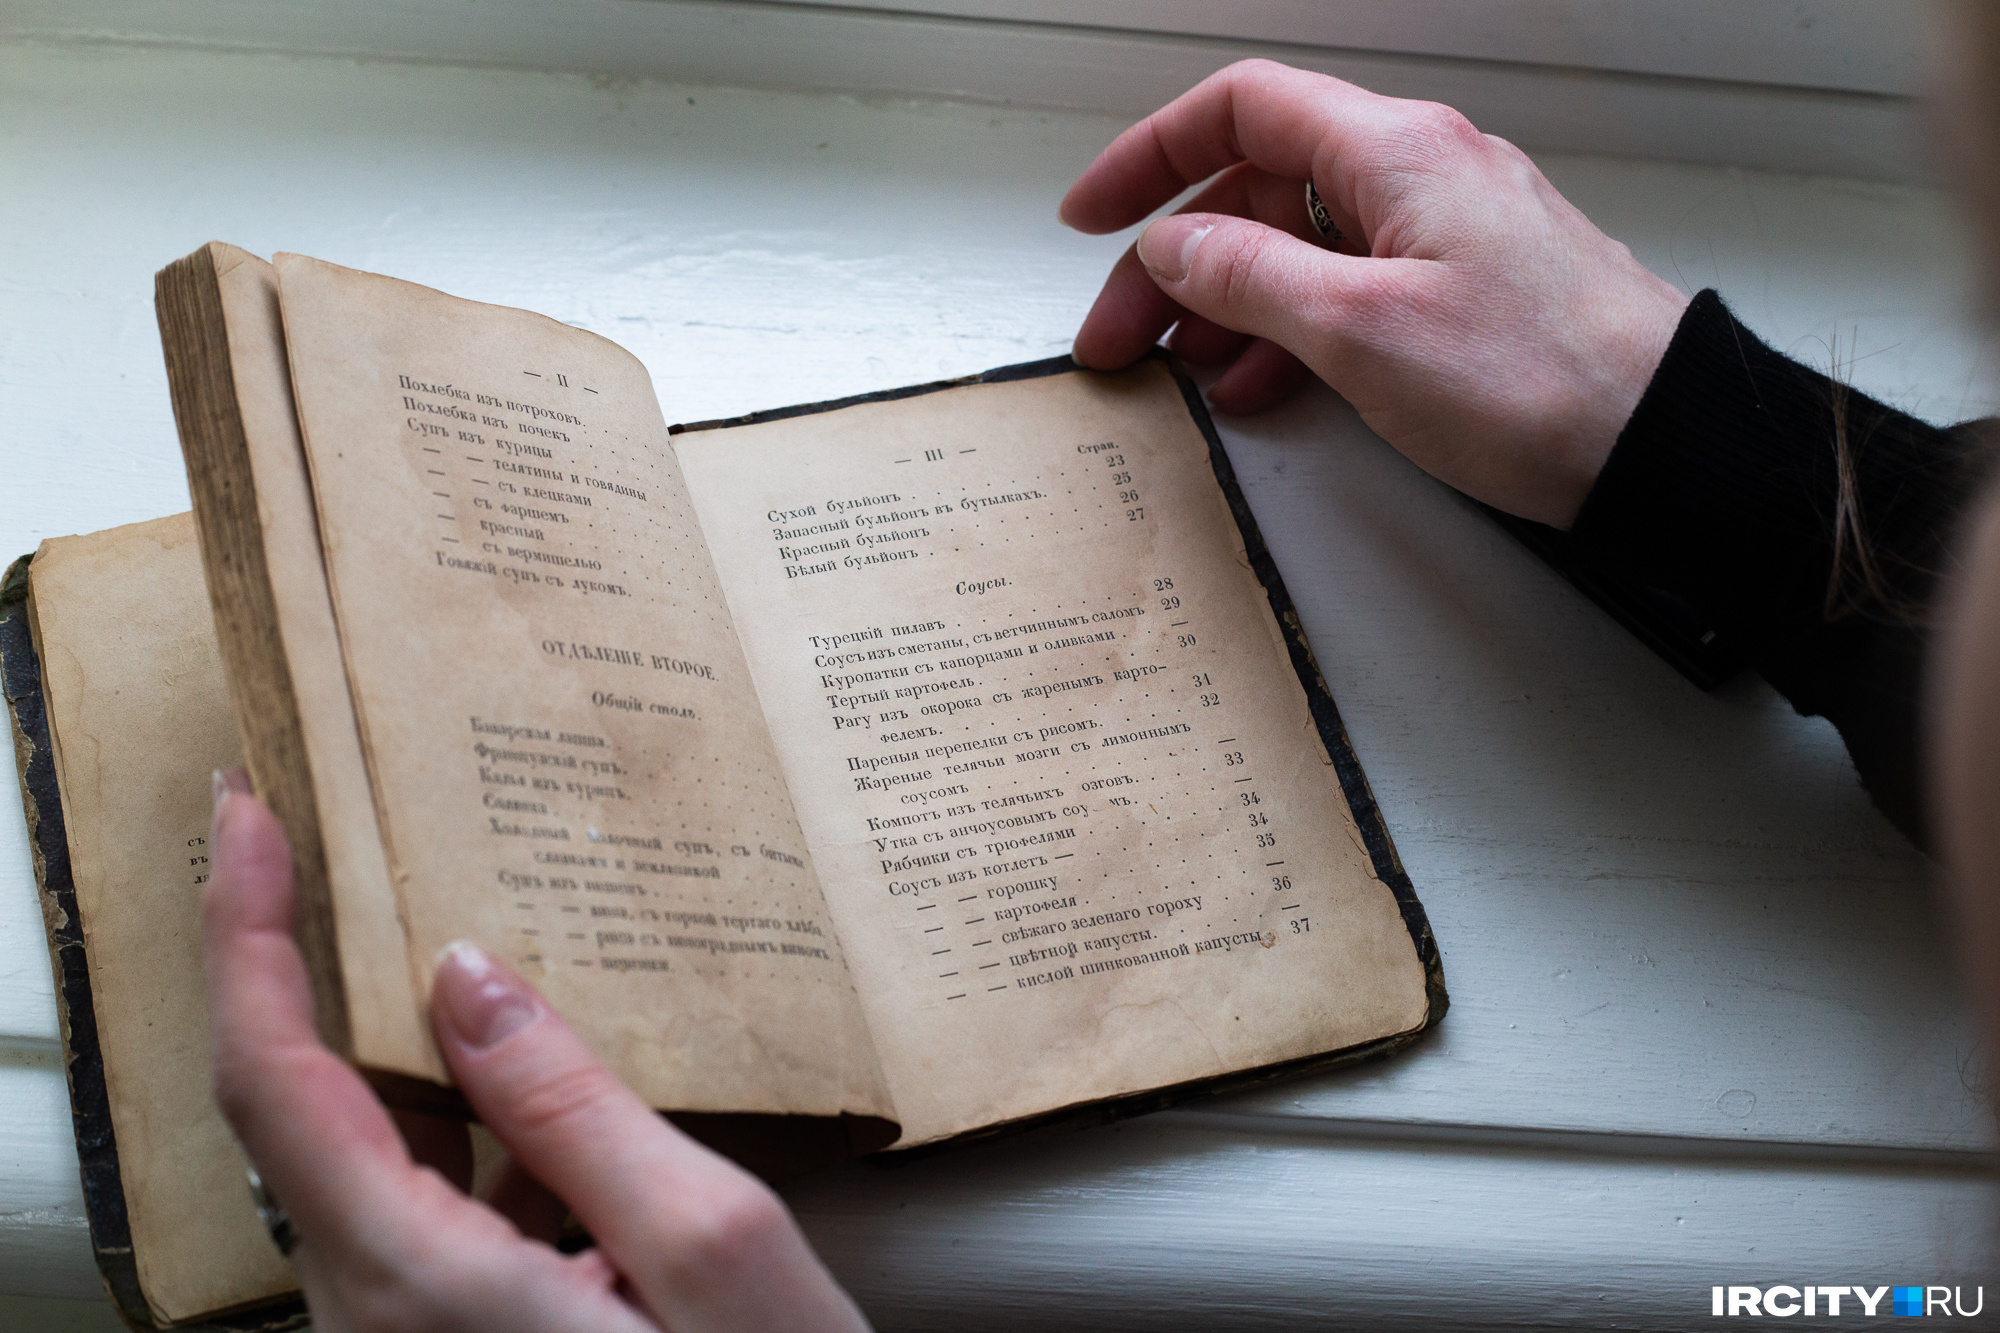 — II —
Похлебка изъ потроховъ.
Похлебка изъ почекъ
Супъ изъ курицы
— — телятины и говядины
— — съ клецками
— съ фаршемъ
— красный
— съ вермишелью
Говяжій супъ съ лукомъ.
ОТДѢЛЕНІЕ ВТОРОЕ.
Общій столъ.
Баварская лапша.
Французскій супъ.
Калья изъ курицъ.
Холодный молочный супъ, съ битыми
сливками и земляникой
Супъ изъ
— — съ горкой тертаго хлѣба
— — рисъ съ винограднымъ виномъ.
— —
съ
въ
ла
— III —
Стран.
Сухой бульйонъ . . . . . . . 23
Запасный бульйонъ въ бутылкахъ. . . . 25
Красный бульйонъ . . . . . . . 26
Бѣлый бульйонъ . . . . . . . 27
Соусы.
Турецкій пилавъ . . . . . . . 28
Соусъ изъ сметаны, съ ветчиннымъ саломъ 29
Куропатки съ капорцами и оливками . . —
Тертый картофель . . . . . . . 30
Рагу изъ окорока съ жаренымъ карто-
фелемъ. . . . . . . . 31
Пареныя перепелки съ рисомъ. . . . . 32
Жареные телячьи мозги съ лимоннымъ
соусомъ . . . . . . . —
Компотъ изъ телячьихъ озговъ. . . . . 33
Утка съ анчоусовымъ соу мъ. . . . . —
Рябчики съ трюфелями . . . . . . 34
Соусъ изъ котлетъ — . . . . . . 34
— — горошку . . . . . . 35
— — картофеля . . . . . . —
— — свѣжаго зеленаго гороху . . 36
— — цвѣтной капусты. . . . . —
— — кислой шинкованной капусты 37
IRCITY.RU